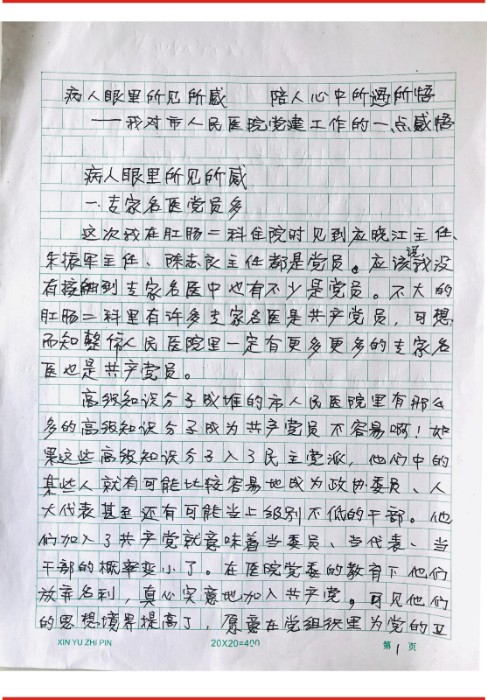 病人眼里所见所感 陪人心中所遇所悟
——我对市人民医院党建工作的一点感悟
病人眼里所见所感
一.专家名医党员多
这次我在肛肠二科住院时见到应晓江主任、
朱振军主任、陈志良主任都是党员。应该说我没
有接触到专家名医中也有不少是党员。不大的
肛肠二科里有许多专家名医是共产党员,可想
而知整个人民医院里一定有更多更多的专家名
医也是共产党员。
高级知识分子成堆的市人民医院里有那么
多的高级知识分子成为共产党员不容易啊!如
果这些高级知识分子入了民主党派,他们中的
某些人就有可能比较容易地成为政协委员、人
大代表甚至还有可能当上级别不低的干部。他
们加入了共产党就意味着当委员、当代表、当
干部的概率变小了。在医院党委的教育下他们
放弃名利,真心实意地加入共产党。可见他们
的思想境界提高了,愿意在党组织里为党的卫
XIN YU ZHI PIN 20X20=400 第1页